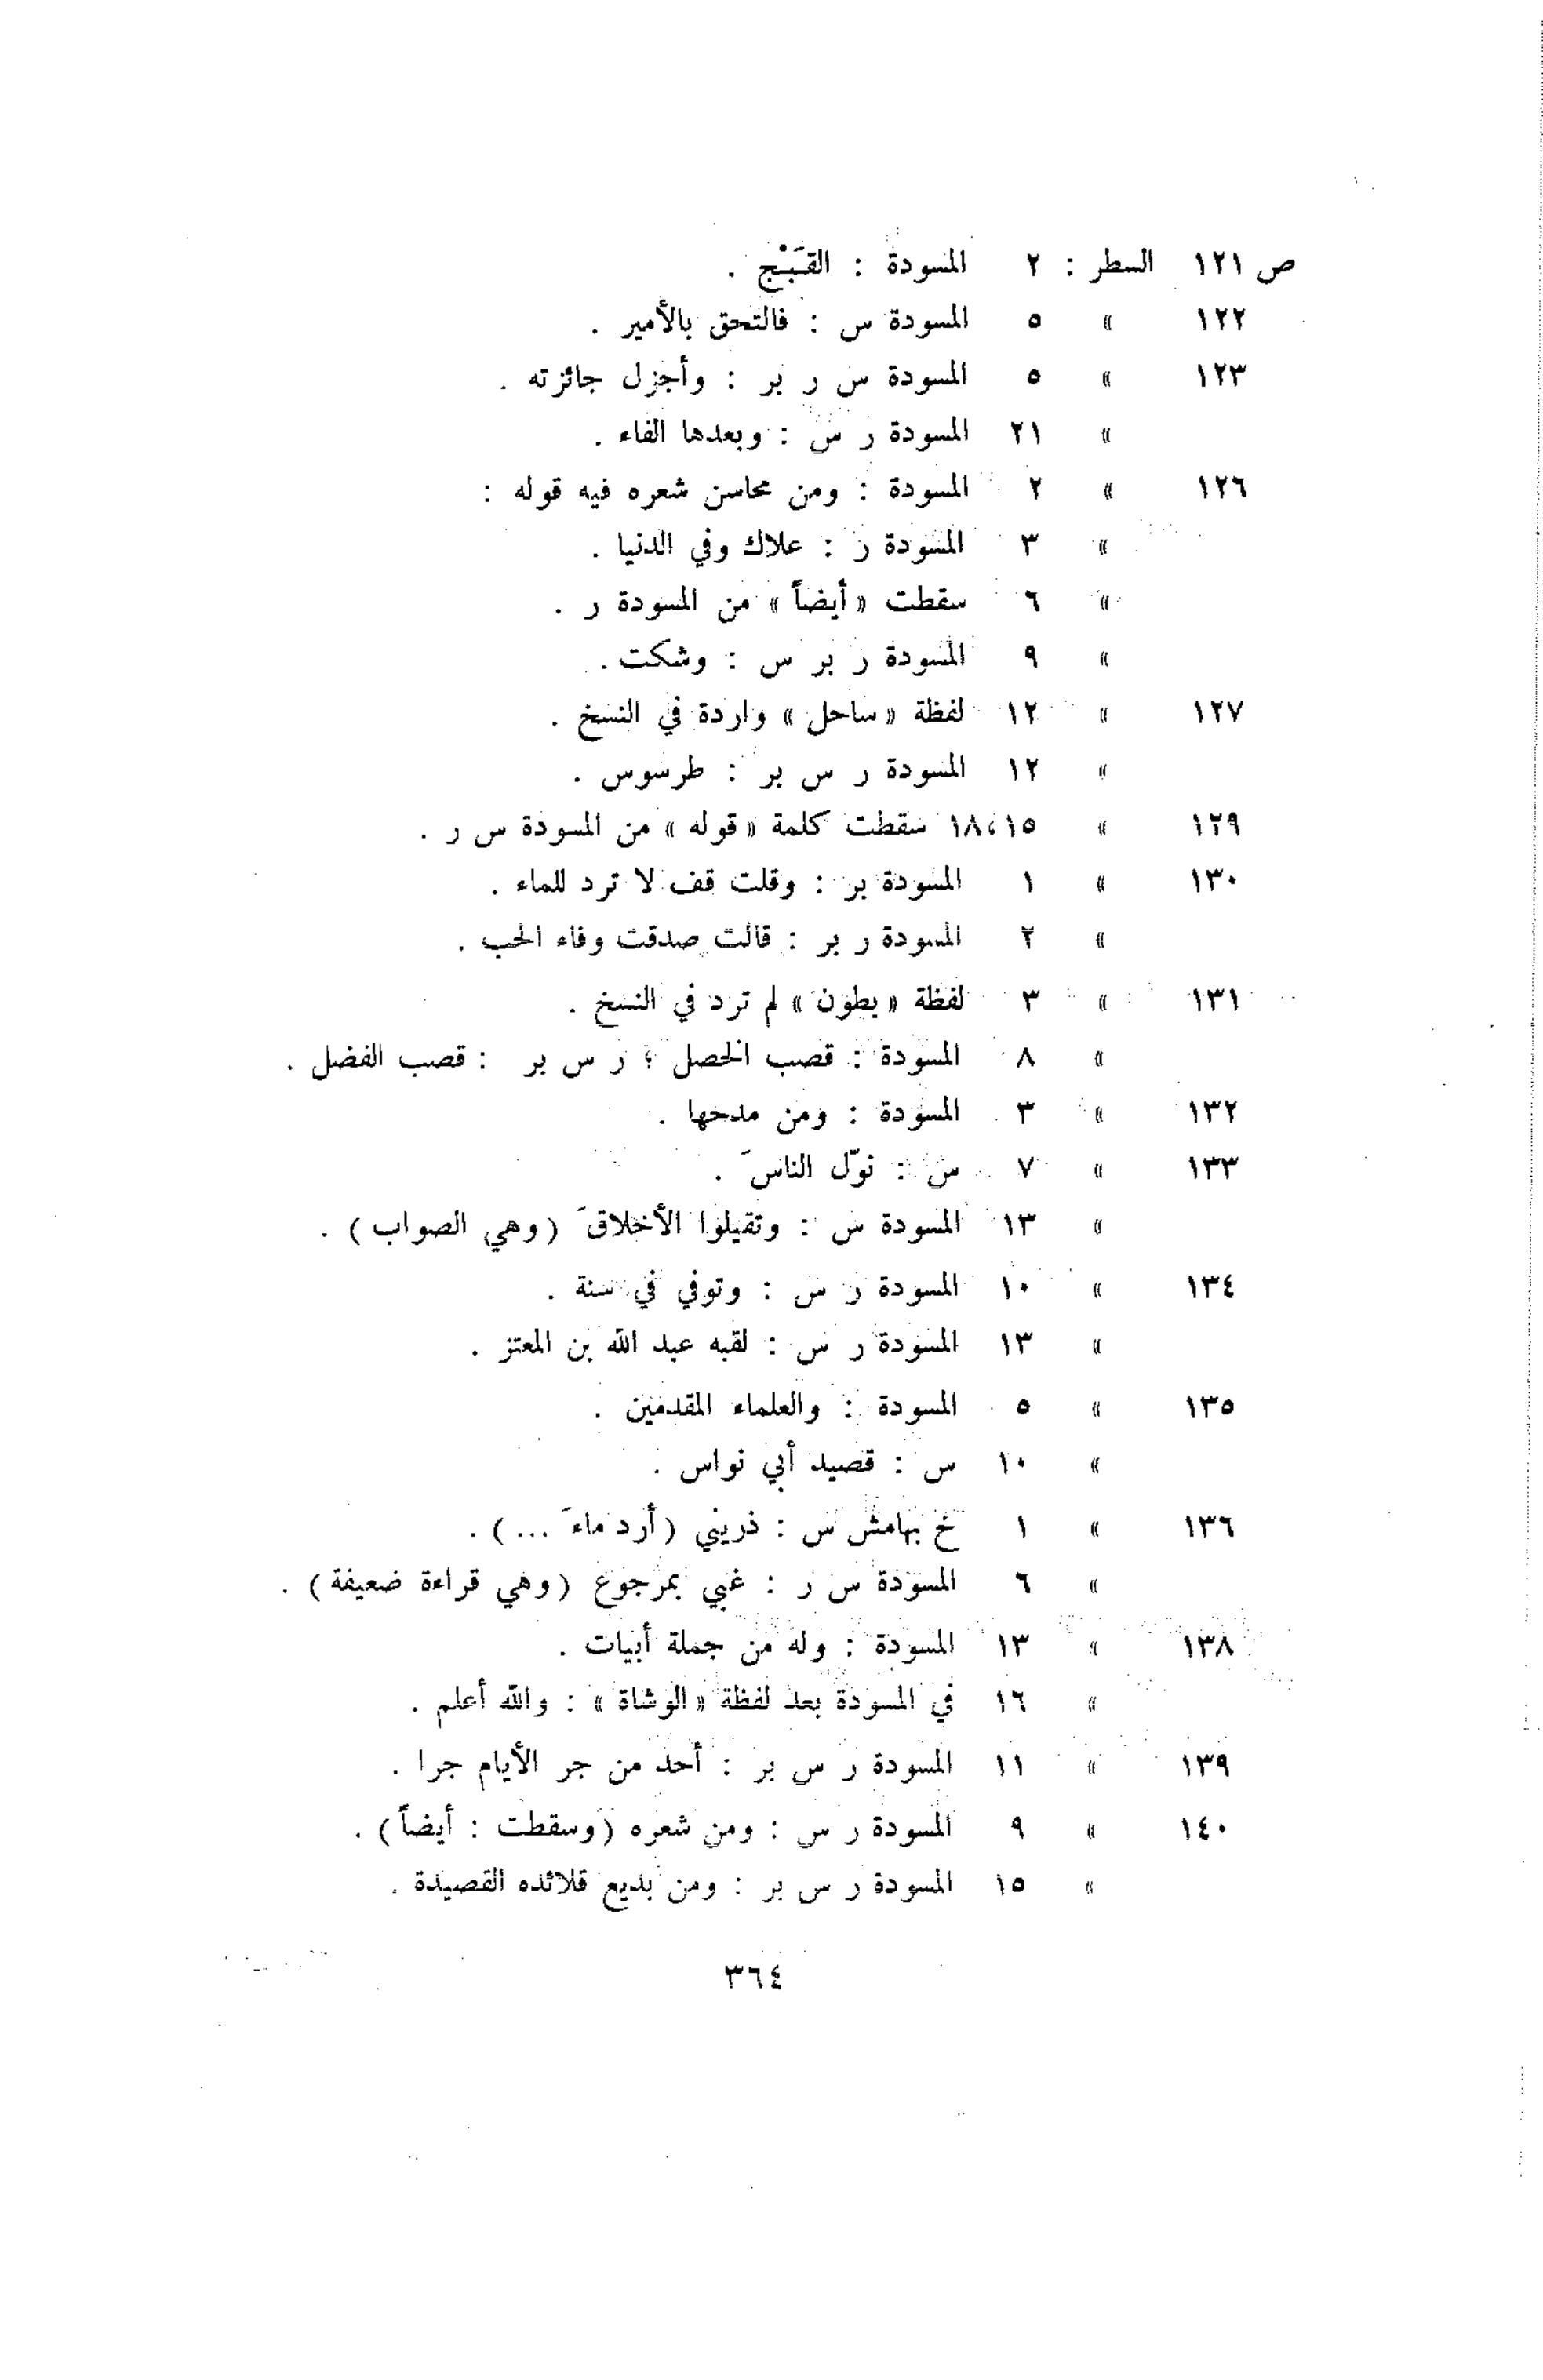 ص ١٢١ السطر : ٢ المسودة : القَبْج .
١٢٢ » ٥ المسودة س : فالتحق بالأمير .
١٢٣ » ٥ المسودة س ر بر : وأجزل جائزته .
» ٢١ المسودة ر س : وبعدها الفاء .
١٢٦ » ٢ المسودة : ومن محاسن شعره فيه قوله :
» ٣ المسودة ر : علاك وفي الدنيا .
» ٦ سقطت « أيضاً » من المسودة ر .
» ٩ المسودة ر بر س : وشكت .
١٢٧ » ١٢ لفظة « ساحل » واردة في النسخ .
» ١٢ المسودة ر س بر : طرسوس .
١٢٩ » ١٨،١٥ سقطت كلمة « قوله » من المسودة س ر .
١٣٠ » ١ المسودة بر : وقلت قف لا ترد للماء .
» ٢ المسودة ر بر : قالت صدقت وفاء الحب .
١٣١ » ٣ لفظة « بطون » لم ترد في النسخ .
» ٨ المسودة : قصب الخصل ؛ ر س بر : قصب الفضل .
١٣٢ » ٣ المسودة : ومن مدحها .
١٣٣ » ٧ س : نوّل الناسَ .
» ١٣ المسودة س : وتقيلوا الأخلاقَ ( وهي الصواب ) .
١٣٤ » ١٠ المسودة ر س : وتوفي في سنة .
» ١٣ المسودة ر س : لقبه عبد الله بن المعتز .
١٣٥ » ٥ المسودة : والعلماء المقدمين .
» ١٠ س : قصيد أبي نواس .
١٣٦ » ١ خ بهامش س : ذريني ( أرد ماءَ ... ) .
» ٦ المسودة س ر : غبي بمرجوع ( وهي قراءة ضعيفة ) .
١٣٨ » ١٣ المسودة : وله من جملة أبيات .
» ١٦ في المسودة بعد لفظة « الوشاة » : والله أعلم .
١٣٩ » ١١ المسودة ر س بر : أحد من جر الأيام جرا .
١٤٠ » ٩ المسودة ر س : ومن شعره ( وسقطت : أيضاً ) .
» ١٥ المسودة ر س بر : ومن بديع قلائده القصيدة .
٣٦٤